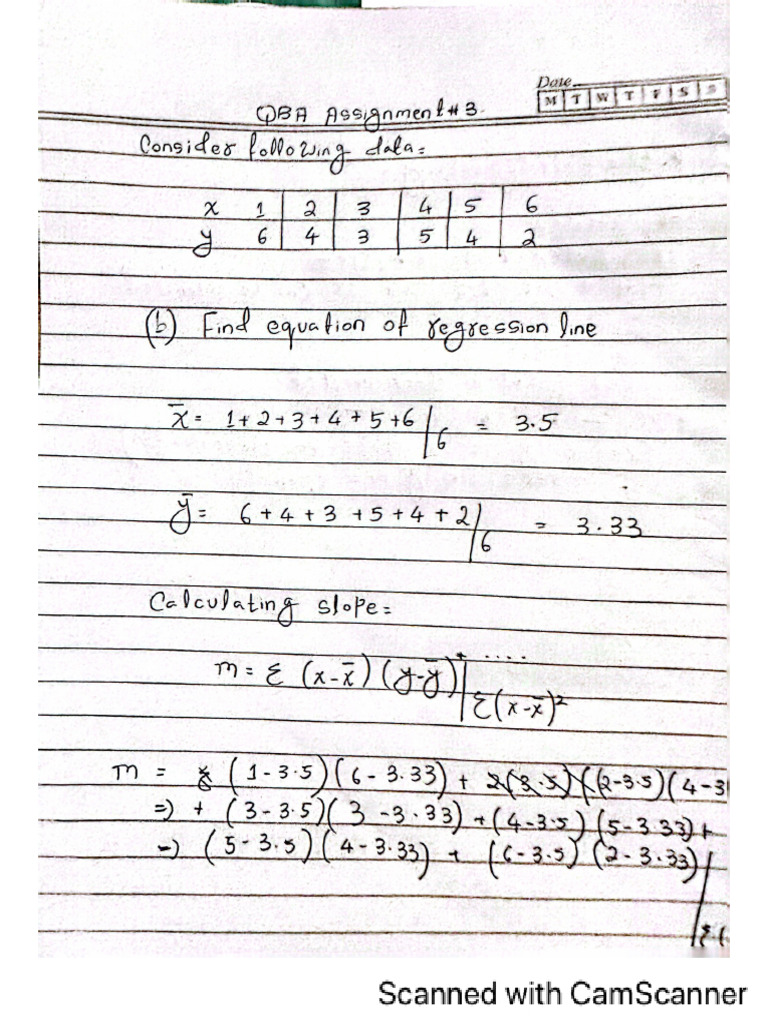 Date
M T W T F S S
QBA Assignment # 3.
Consider following data:
x 1 2 3 4 5 6
y 6 4 3 5 4 2
(b) Find equation of regression line
x̄ = 1+2+3+4+5+6 / 6 = 3.5
ȳ = 6+4+3+5+4+2 / 6 = 3.33
Calculating slope:
m = Σ (x-x̄) (y-ȳ) + .... / Σ(x-x̄)²
m = (1-3.5)(6-3.33) + (2-3.5)(4-3
=> + (3-3.5)(3-3.33) + (4-3.5)(5-3.33)+
=> (5-3.5)(4-3.33) + (6-3.5)(2-3.33) /
Σ(
Scanned with CamScanner